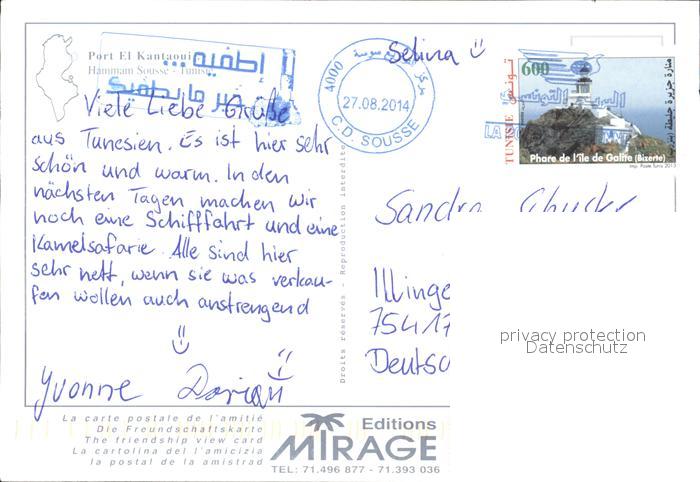 Port El Kantaoui
Hammam Sousse - Tunisie
إطفيه...
خير ما يطفيك
4000
27.08.2014
C.D. SOUSSE
Selina
600
TUNISIE
تونس
البريد التونسي
Phare de l'île de Galite (Bizerte)
Imp. Poste Tunis 2013
Viele Liebe Grüße
aus Tunesien. Es ist hier sehr
schön und warm. In den
nächsten Tagen machen wir
noch eine Schifffahrt und eine
Kamelsafarie. Alle sind hier
sehr nett, wenn sie was verkau-
fen wollen auch anstrengend
Yvonne Dorian
Droits réservés - Reproduction interdite
Sandra
Illinge
75417
Deutsc
privacy protection
Datenschutz
La carte postale de l'amitié
Die Freundschaftskarte
The friendship view card
La cartolina del l'amicizia
la postal de la amistrad
Editions
MIRAGE
TEL: 71.496 877 - 71.393 036